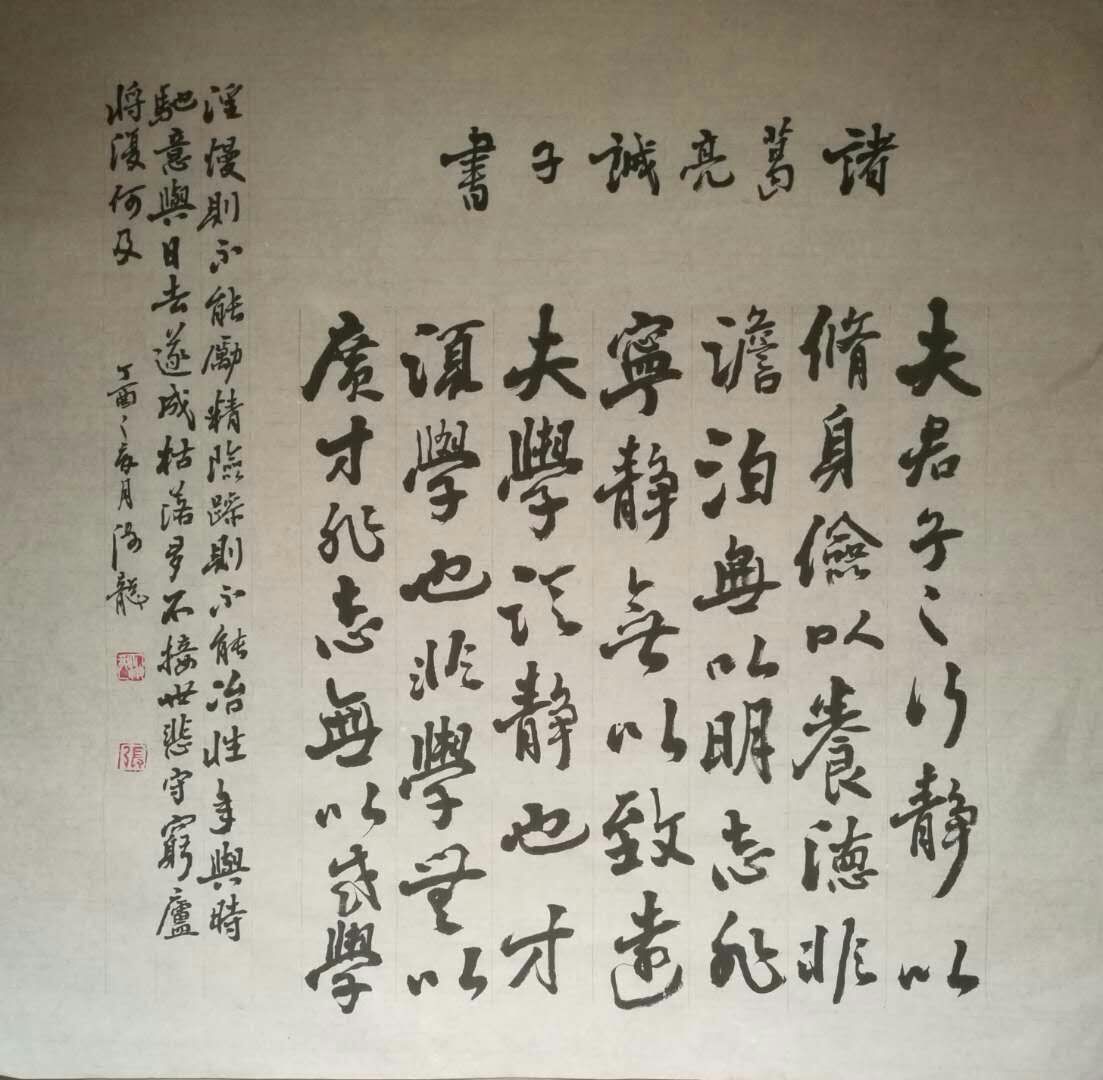 諸葛亮誡子書
夫君子之行靜以
脩身儉以養德非
澹泊無以明志非
寧靜無以致遠
夫學須靜也才
須學也非學無以
廣才非志無以成學
淫慢則不能勵精險躁則不能冶性年與時
馳意與日去遂成枯落多不接世悲守窮廬
將復何及
丁酉之亥月 龍
張